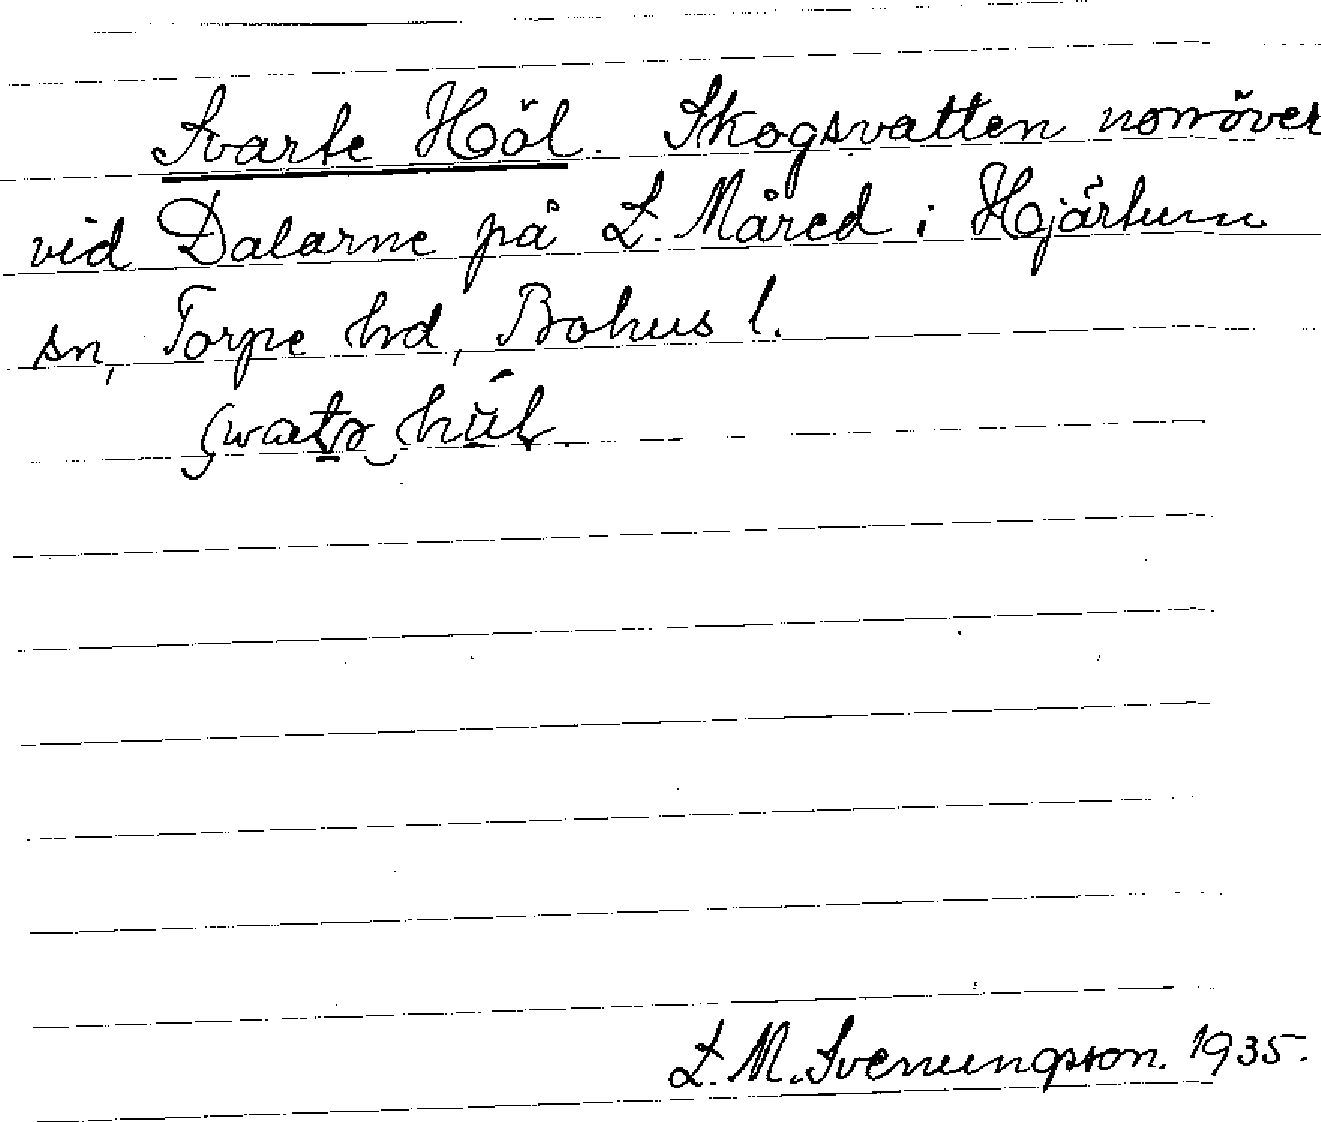 Svarte Höl. Skogsvatten norröver
vid Dalarne på L. Måred i Hjärtum
sn, Torpe hd, Bohus l.
L. M. Svenungsson. 1935.